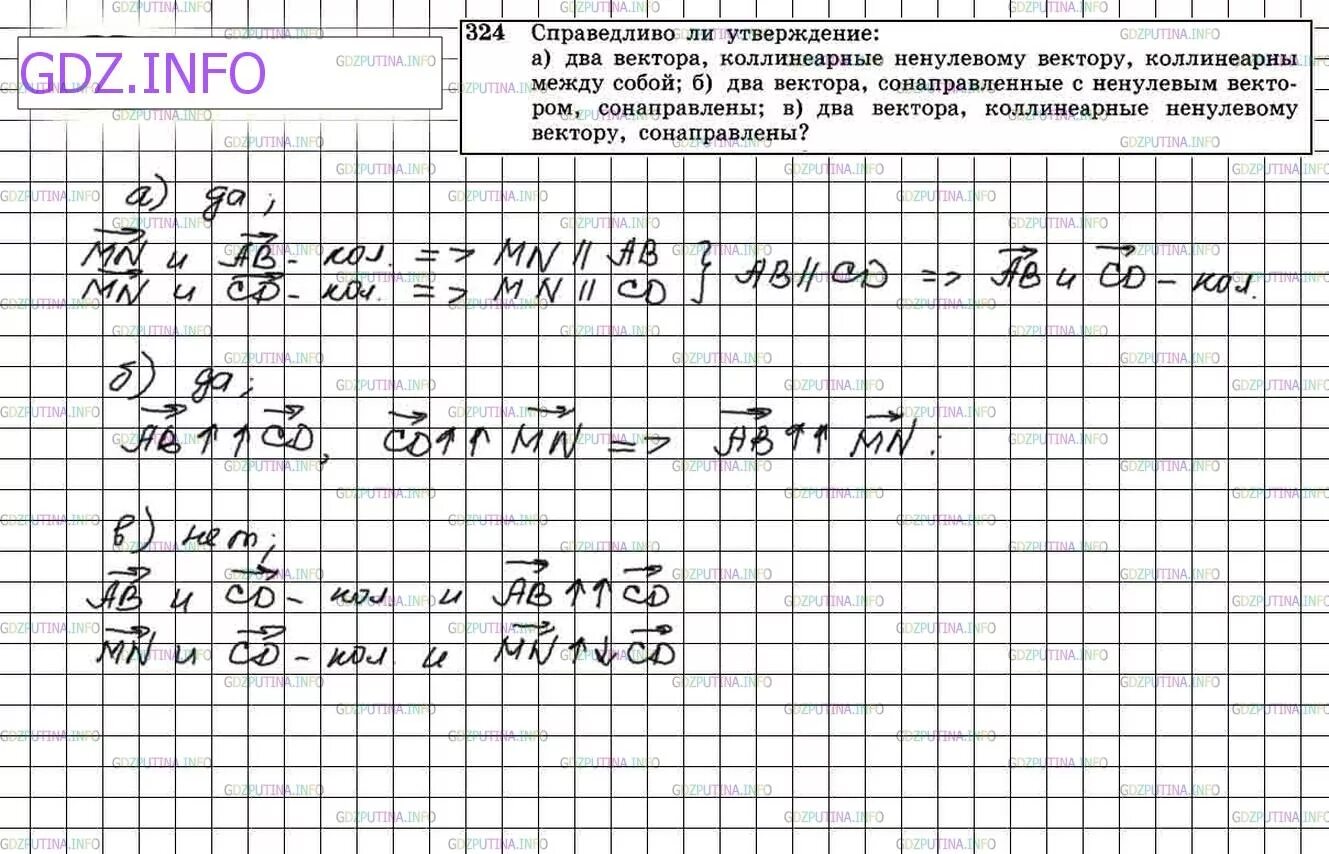 GDZ.INFO
324 Справедливо ли утверждение:
а) два вектора, коллинеарные ненулевому вектору, коллинеарны
между собой; б) два вектора, сонаправленные с ненулевым векто-
ром, сонаправлены; в) два вектора, коллинеарные ненулевому
вектору, сонаправлены?
а) да;
MN и AB - кол. => MN // AB } AB // CD => AB и CD - кол.
MN и CD - кол. => MN // CD
б) да;
AB ↑↑ CD, CD ↑↑ MN => AB ↑↑ MN.
в) нет;
AB и CD - кол. и AB ↑↑ CD
MN и CD - кол. и MN ↑↓ CD
GDZPUTINA.INFO